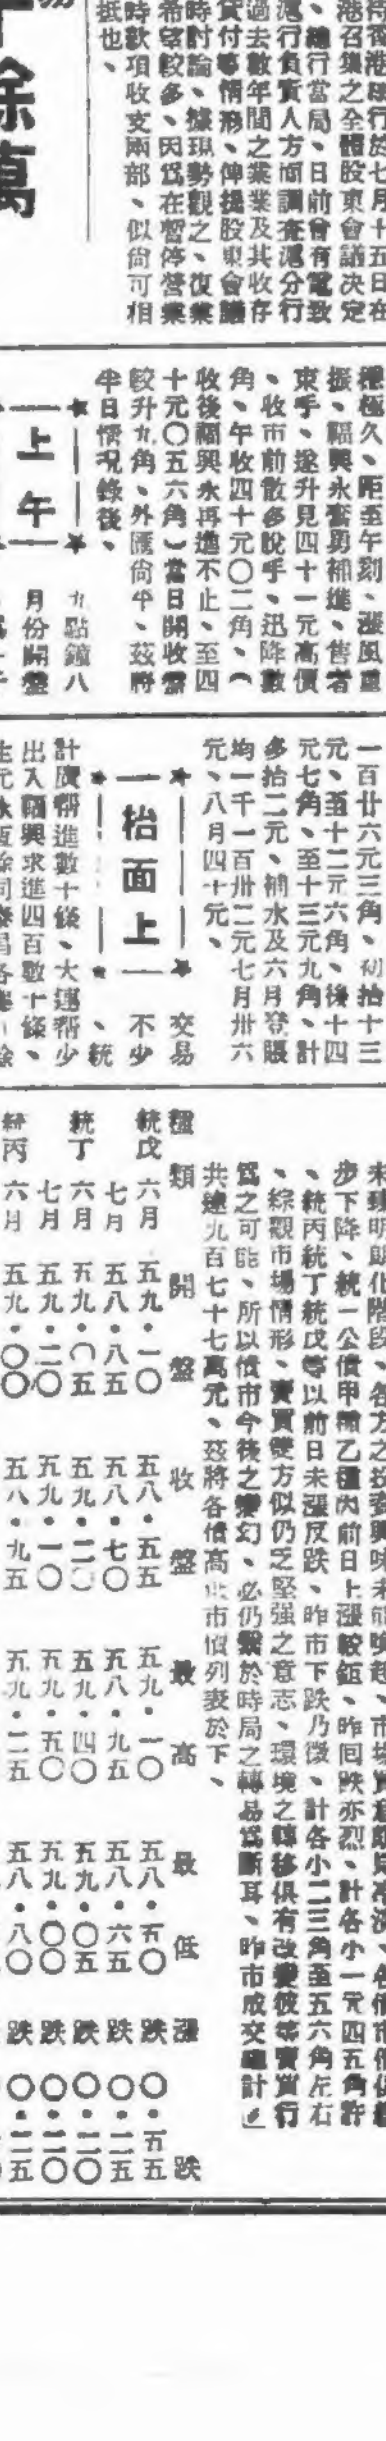 易
十餘萬
行香港總行於七月十五日在
港召集之全體股東會議決定
、總行當局、日前曾有電致
滬行負責人方面調查滬分行
過去數年間之業業及其收存
貸付等情形、俾提股東會議
時討論、據現勢觀之、復業
希望較多、因爲在暫停營業
時欵項收支兩部、似尙可相
抵也、
極久、距至午刻、漲風重
振、福興永奮勇補進、售者
束手、遂升見四十一元高價
、收市前散多脫手、迅降數
角、午收四十元〇二角、(
收後福興永再進不止、至四
十元〇五六角)當日開收盤
較升九角、外匯尙平、茲將
半日情况錄後、
上午
九點鐘八
月份開盤
一百廿六元三角、初抬十三
元、至十二元六角、後十四
元七角、至十三元九角、計
多抬二元、補水及六月登賬
均一千一百卅二元七月卅六
元、八月四十元、
抬面上
交易
不少
、統
計廣幫進數十條、大連幫少
出入福興永進四百數十條、
各方之投資興味未能喚起、市場
步下降、統一公債甲種乙種因前日上漲較鉅、昨回跌亦烈、計各小一元四五角許
、統丙統丁統戊等以前日未漲反跌、昨市下跌乃微、計各小二三角至五六角左右
、綜觀市塲情形、賣買雙方似仍乏堅强之意志、環境之轉移俱有改變彼等賣買行
爲之可能、所以債市今後之變幻、必仍繫於時局之轉易爲斷耳、昨市成交總計
共達九百七十七萬元、茲將各債高低市價列表於下、
種類 開盤 收盤 最高 最低 漲跌
統戊 六月 五九・一〇 五八・五五 五九・一〇 五八・五〇 跌〇・五五
七月 五八・八五 五八・七〇 五八・九五 五八・六五 跌〇・二五
統丁 六月 五九・〇五 五九・二〇 五九・四〇 五九・〇五 跌〇・二〇
七月 五九・二〇 五九・一〇 五九・五〇 五九・〇〇 跌〇・二〇
統丙 六月 五九・〇〇 五八・九五 五九・二五 五八・八〇 跌〇・二五